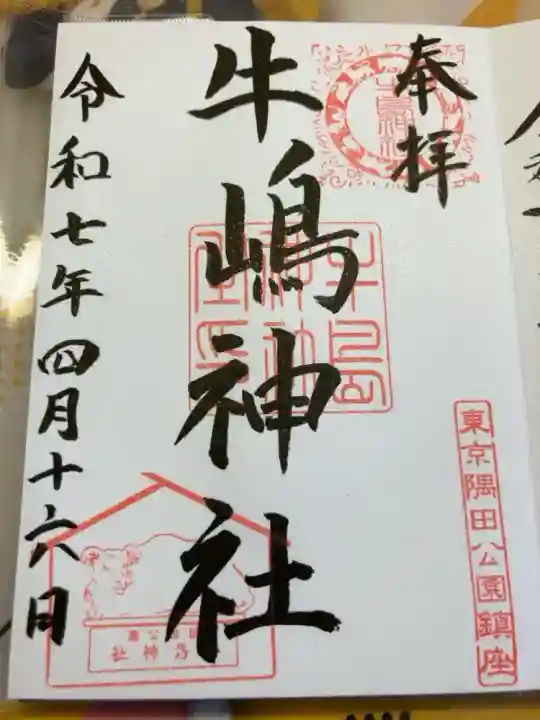 奉拝
東京隅田公園鎮座
牛嶋神社
令和七年四月十六日